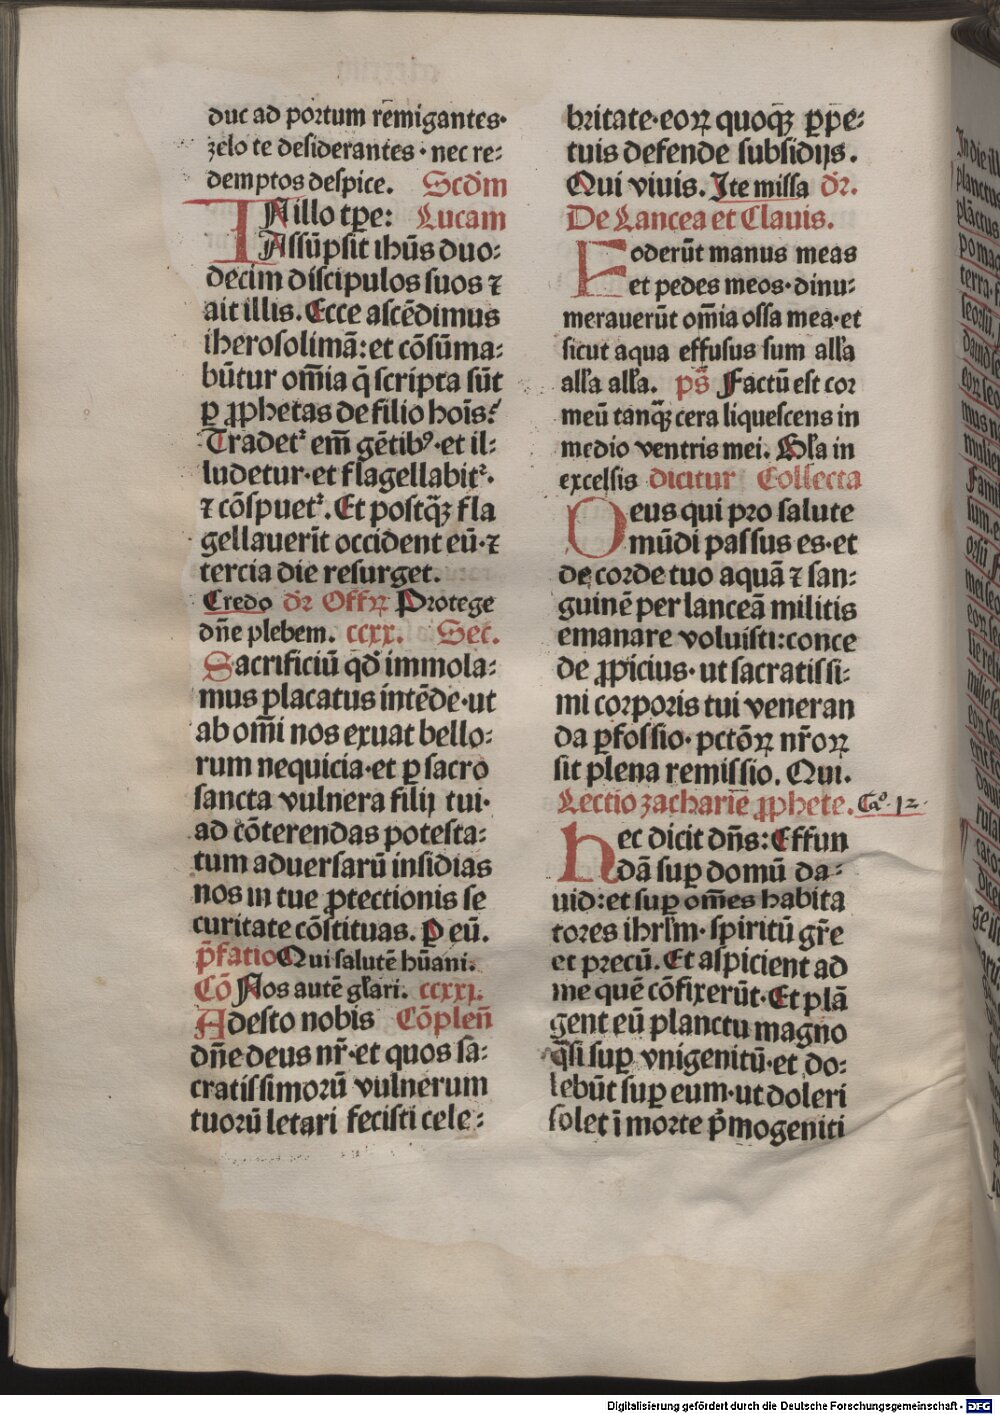 duc ad portum remigantes·
zelo te desiderantes · nec re⸗
demptos despice. Scd̄m
IN illo tꝑe: Lucam
Assūpsit ihūs duo⸗
decim discipulos suos ⁊
ait illis. Ecce ascēdimus
iherosolimā: et cōsūma⸗
būtur om̄ia q̄ scripta sūt
ꝑ ꝓphetas de filio hoīs.
Tradetᷣ em̄ gētibꝰ· et il⸗
ludetur· et flagellabitᷣ·
⁊ cōspuetᷣ. Et postqꝫ fla
gellauerīt occident eū· ⁊
tercia die resurget.
Credo dr̄ Offꝝ Protege
dn̄e plebem. ccxx. Sec.
Sacrificiū qd̄ immola⸗
mus placatus intēde· ut
ab om̄i nos exuat bello⸗
rum nequicia· et ꝑ sacro
sancta vulnera filij tui·
ad cōterendas potesta⸗
tum aduersarū insidias
nos in tue ꝓtectionis se
curitate cōstituas. P eū.
p̄fatio Qui salutē hūani.
Cō Nos autē gl̄ari. ccxxj.
Adesto nobis Cōplen̄
dn̄e deus nr̄· et quos sa⸗
cratissimorū vulnerum
tuorū letari fecisti cele⸗
britate· eoꝝ quoqꝫ ꝑpe⸗
tuis defende subsidijs.
Qui viuis. Ite missa dr̄.
De Lancea et Clauis.
Foderūt manus meas
et pedes meos· dinu⸗
merauerūt om̄ia ossa mea· et
sicut aqua effusus sum all'a
all'a all'a. ps̄ Factū est cor
meū tanqꝫ cera liquescens in
medio ventris mei. Gl'a in
excelsis dicitur Collecta
Deus qui pro salute
mūdi passus es· et
de corde tuo aquā ⁊ san⸗
guinē per lanceā militis
emanare voluisti: conce
de ꝓpicius· ut sacratissi⸗
mi corporis tui veneran
da ꝑfossio· pctōꝝ nr̄oꝝ
sit plena remissio. Qui.
Lectio zacharie ꝓphete. Cao. 12.
Hec dicit dn̄s: Effun
dā suꝑ domū da⸗
uid: et suꝑ om̄es habita
tores ihrl'm· spiritū gr̄e
et precū. Et aspicient ad
me quē cōfixerūt· Et plā
gent eū planctu magno
q̄si suꝑ vnigenitū· et do⸗
lebūt suꝑ eum· ut doleri
solet ī morte pͥmogeniti
Digitalisierung gefördert durch die Deutsche Forschungsgemeinschaft - DFG